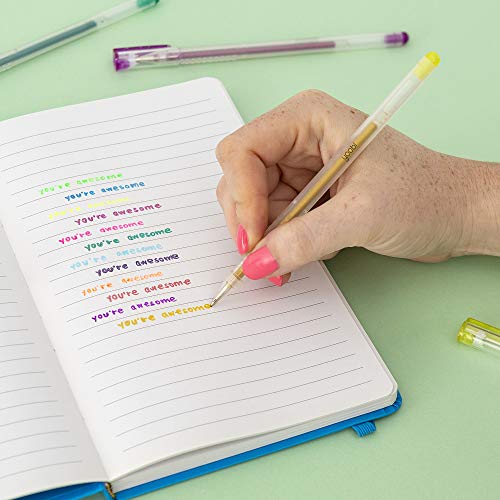 you're awesome
you're awesome
you're awesome
you're awesome
you're awesome
you're awesome
you're awesome
you're awesome
you're awesome
you're awesome
you're awesome
you're awesome
yoobi